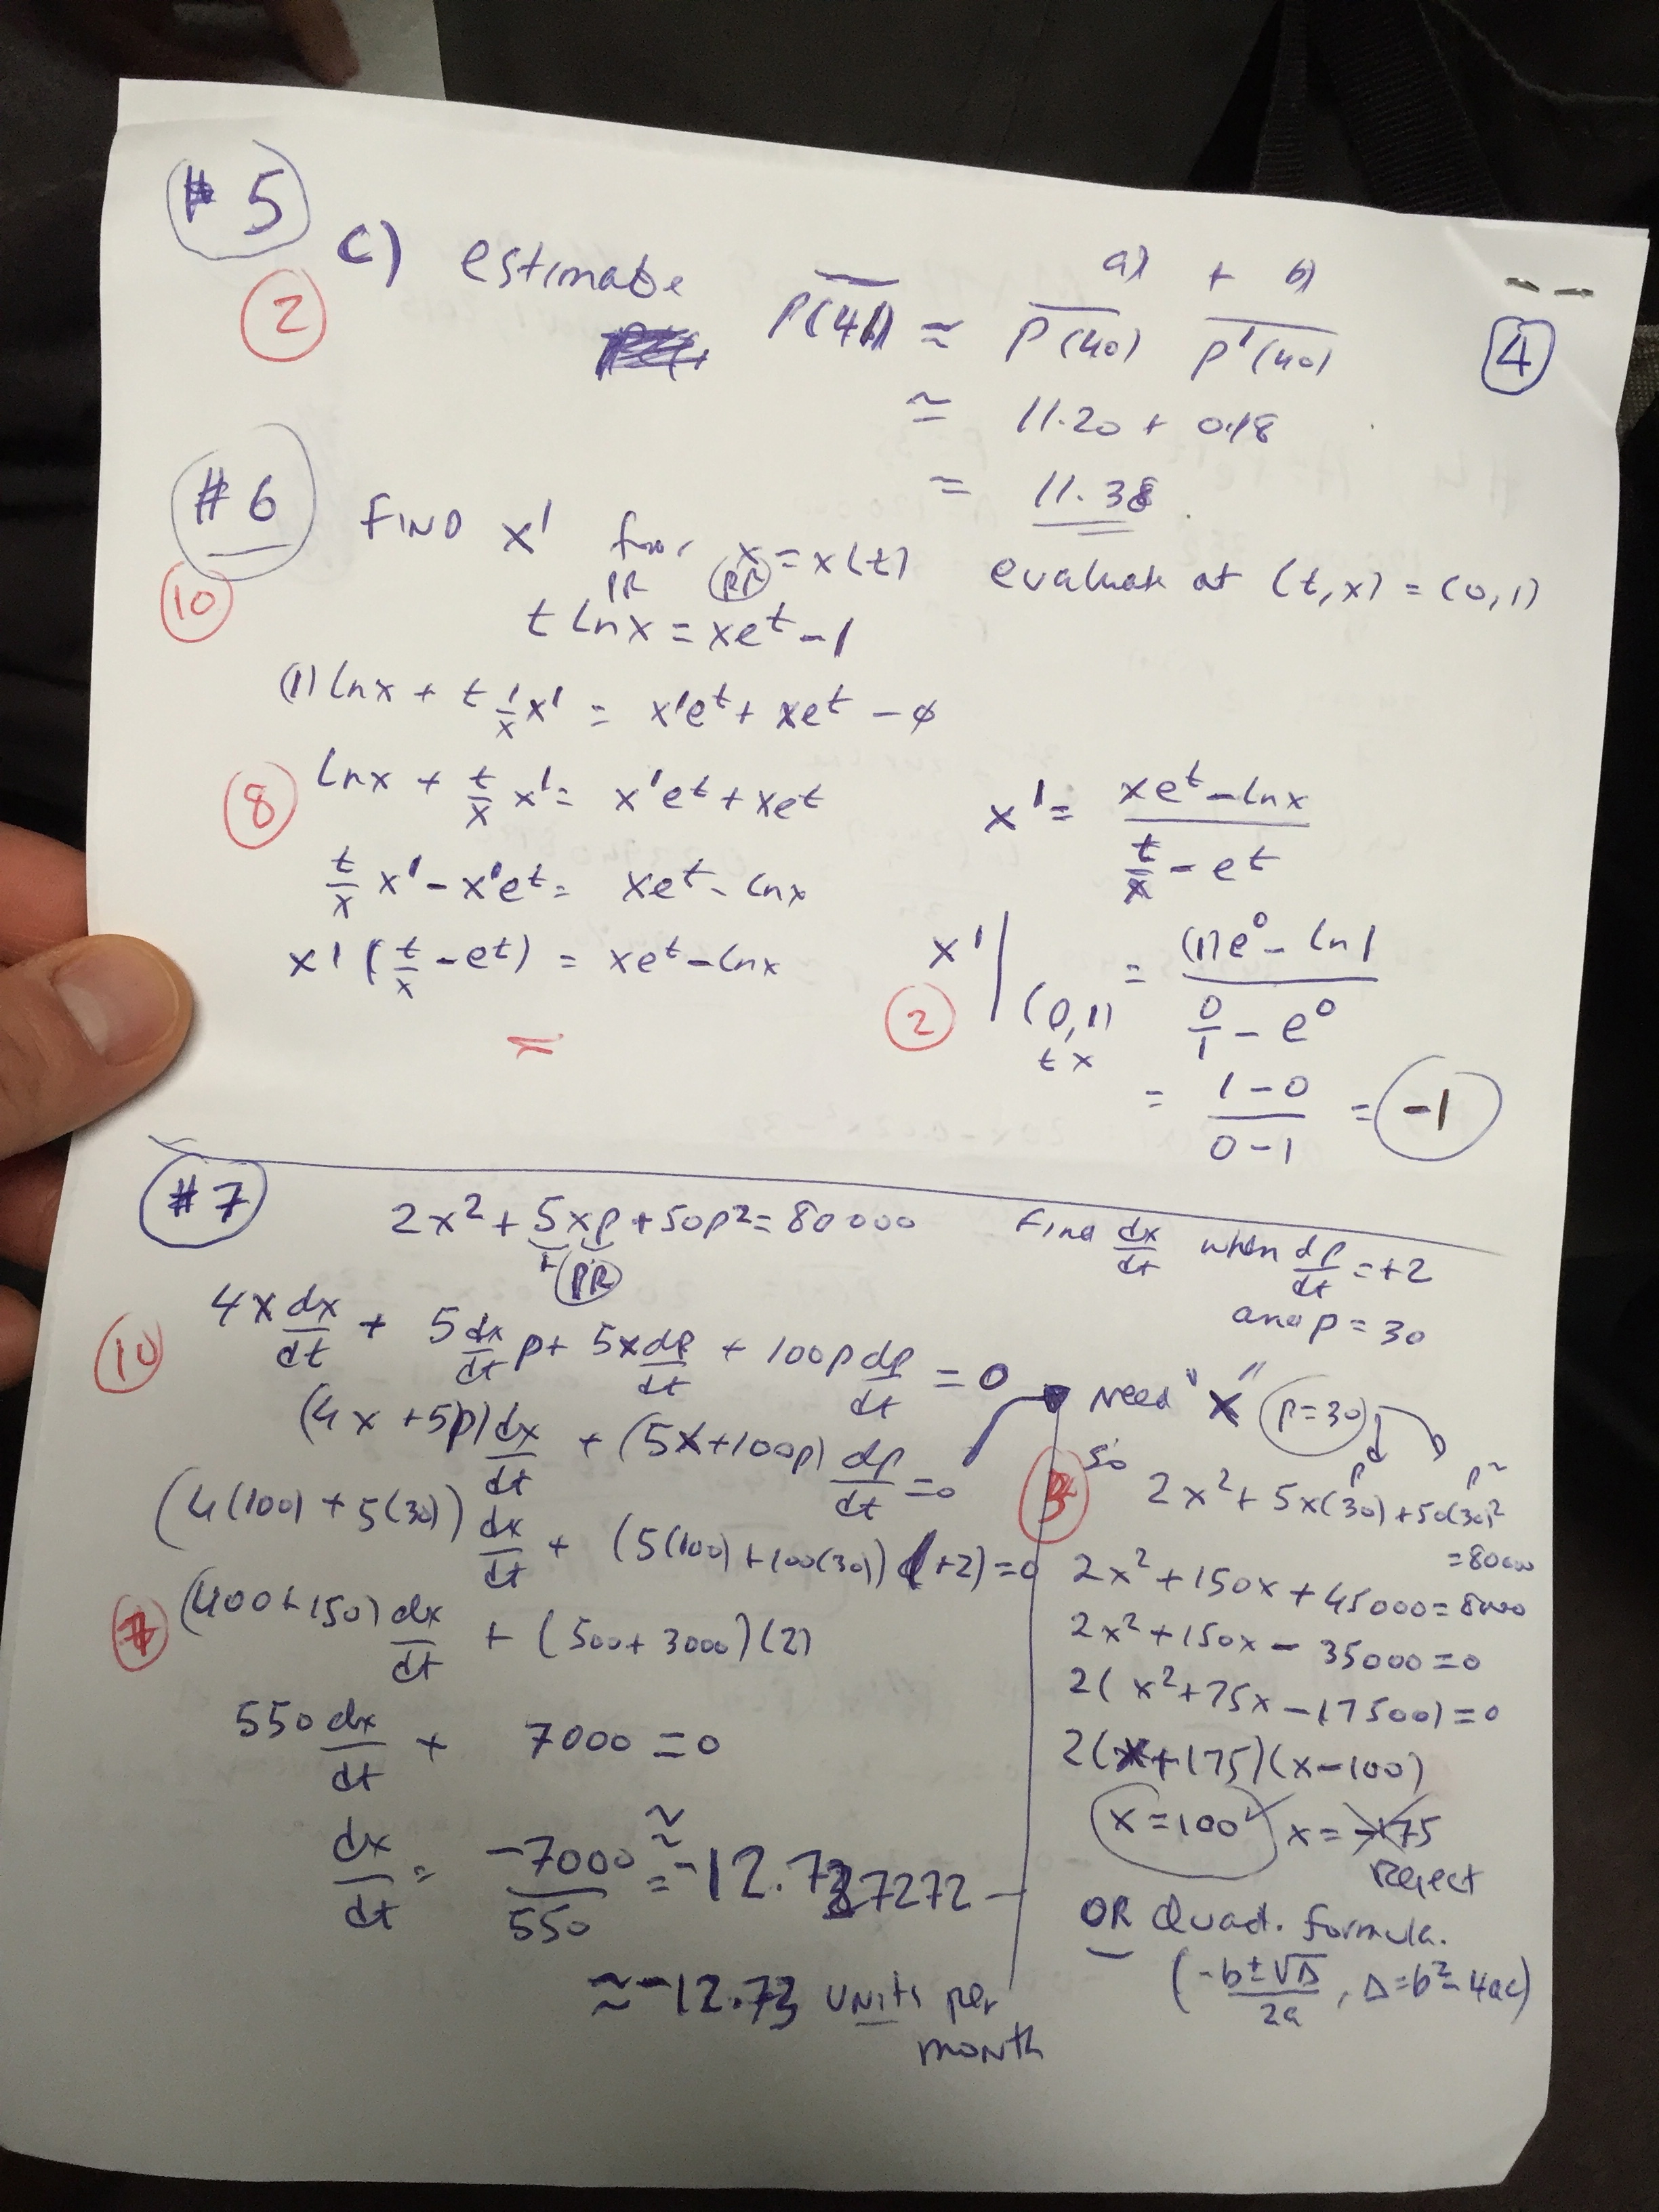 #5
c) estimate P(41) ≈ P(40) P'(40)
a) + b)
2
4
≈ 11.20 + 0.18
≈ 11.38
#6 FIND x' for x = x(t) evaluate at (t,x) = (0,1)
10
PR PR
t ln x = xe^t - 1
(1) ln x + t 1/x x' = x'e^t + xe^t - 0
8
ln x + t/x x' = x'e^t + xe^t
t/x x' - x'e^t = xe^t - ln x
x' (t/x - e^t) = xe^t - ln x
x' = (xe^t - ln x)/(t/x - e^t)
2
x' | (0,1) = ((1)e^0 - ln 1)/(0/1 - e^0)
t x
= (1 - 0)/(0 - 1) = -1
#7 2x² + 5xp + 50p² = 80000 Find dx/dt when dp/dt = +2
PR
and p = 30
10
4x dx/dt + 5 dx/dt p + 5x dp/dt + 100p dp/dt = 0
(4x + 5p) dx/dt + (5x + 100p) dp/dt = 0
(4(100) + 5(30)) dx/dt + (5(100) + 100(30)) (+2) = 0
7
(400 + 150) dx/dt + (500 + 3000)(2)
550 dx/dt + 7000 = 0
dx/dt = -7000/550 ≈ = -12.727272
≈ -12.73 units per
month
Need "x" p = 30
3
so 2x² + 5x(30) + 50(30)²
p p²
= 80000
2x² + 150x + 45000 = 80000
2x² + 150x - 35000 = 0
2(x² + 75x - 17500) = 0
2(x + 175)(x - 100)
x = 100 ✓ x = -175
Reject
OR Quad. formula.
(-b ± √Δ / 2a, Δ = b² - 4ac)